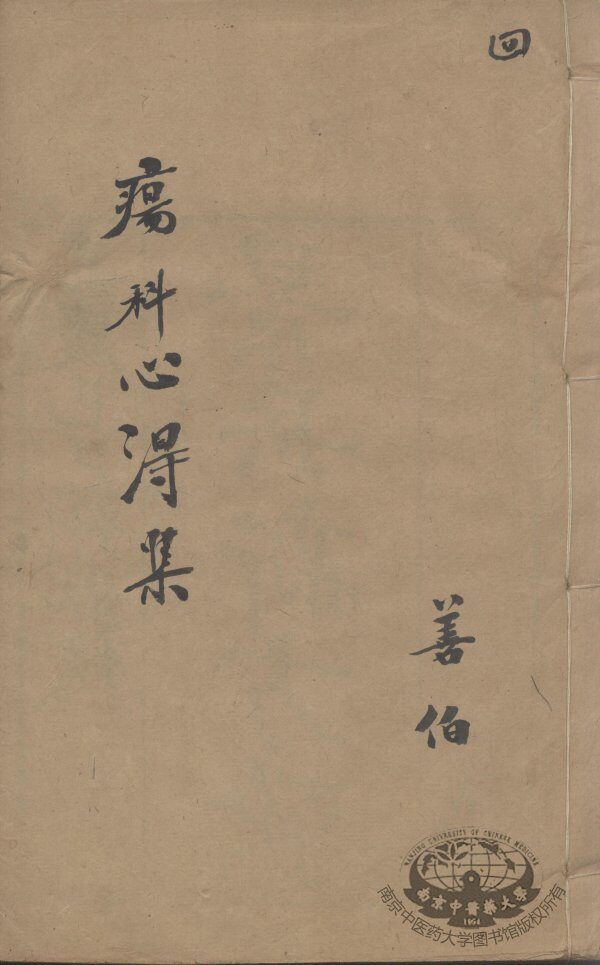 回
善伯
瘍科心得集
NANJING UNIVERSITY OF CHINESE MEDICINE
南京中醫藥大學
1954
南京中医药大学图书馆版权所有